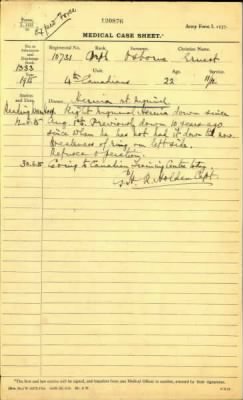 120876
Army Form I. 1237.
MEDICAL CASE SHEET.*
No. in Admission and Discharge Book
Regimental No. Rank. Surname. Christian Name.
10731 Osborne Ernest
1533
Unit. Age. Service.
1915 4th Canadians 22 11/12
Station and Date. Disease Hernia rt. inguinal
Right inguinal hernia down since
Aug. 1st. Previously down 10 years ago
since when he has not had it down till now.
Weakness of ring on left side.
Refuses operation.
Going to Canadian Training Centre
A Holden Capt
* The first and last entries will be signed, and transfers from one Medical Officer to another, attested by their signatures.